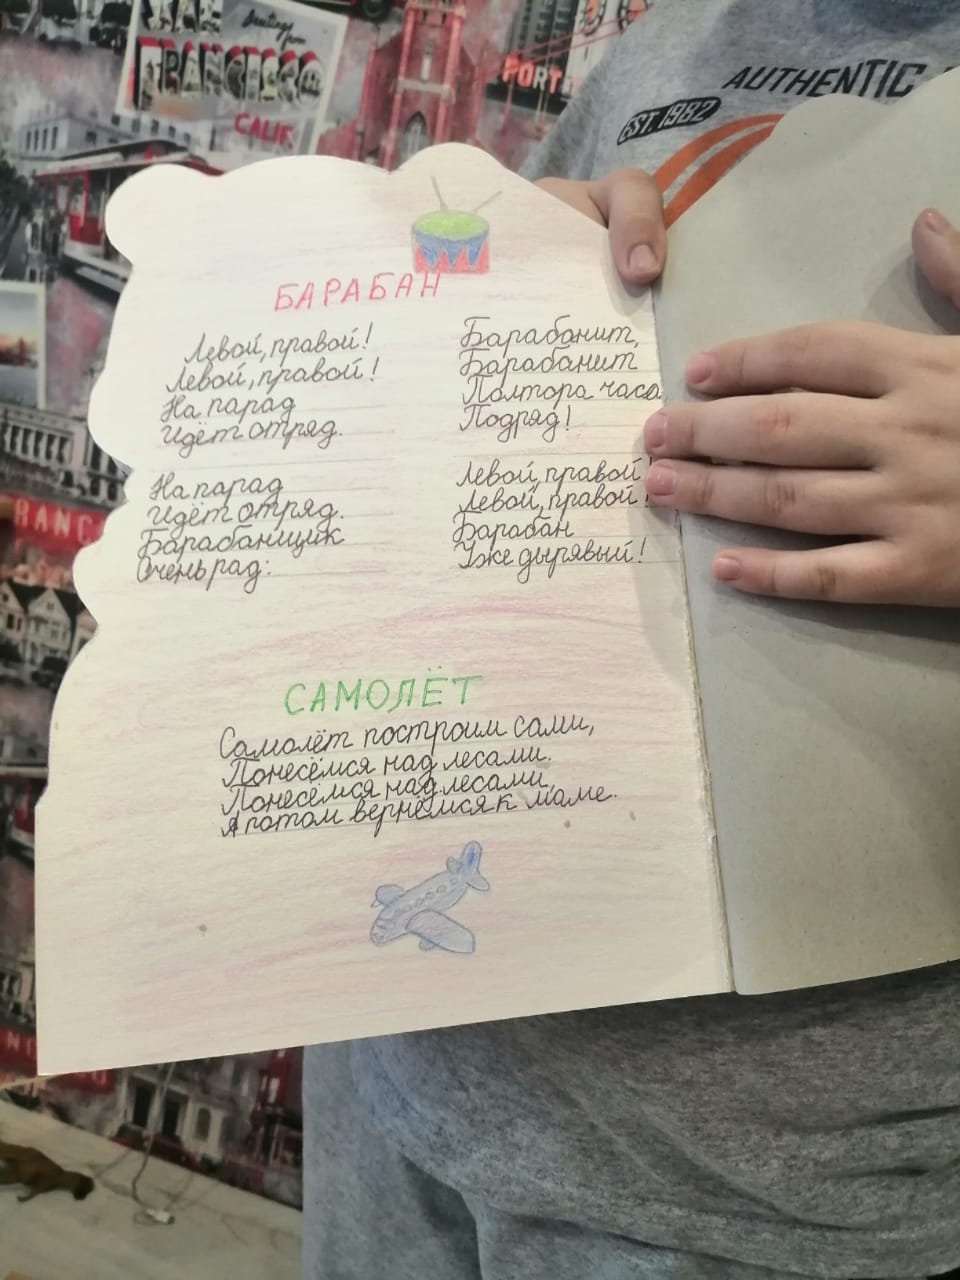 Greetings from
SAN
FRANCISCO
CALIF.
PORT
AUTHENTIC
EST. 1982
БАРАБАН
Левой, правой!
Левой, правой!
На парад
Идёт отряд.
На парад
Идёт отряд.
Барабанщик
Очень рад:
Барабанит,
Барабанит
Полтора часа
Подряд!
Левой, правой!
Левой, правой!
Барабан
Уже дырявый!
САМОЛЁТ
Самолёт построим сами,
Понесёмся над лесами.
Понесёмся над лесами,
А потом вернёмся к маме.